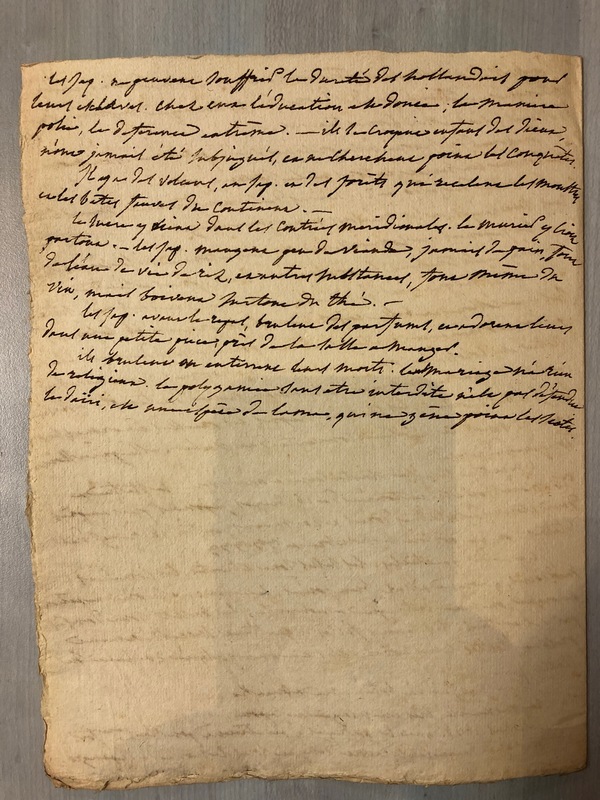 les Jap. ne peuvent souffrir la dureté des hollandais pour
leurs esclaves. chez eux l'éducation est douce, la maniere
polie, la deference extrême. — ils se croyent enfans des Dieux,
n'ont jamais été subjugués, et ne cherchent point les conquêtes.
Il y a des volcans, au Jap. et des forêts qui recelent les monstres
et les bêtes fauves du continent. —
le sucre y vient dans les contrées meridionales. le murier y croit
partout. — les Jap. mangent peu de viande, jamais de pain, font
de l'eau de vie de riz, et autres substances, font même du
vin, mais boivent surtout du thé. —
les Jap. avant le repas, brulent des parfums, et adorent leurs
dans une petite piece près de la salle a manger.
ils brulent ou enterrent leurs morts. le mariage n'a rien
de religieux. la polygamie sans etre interdite n'est pas
le daïri, est une espèce de lama, qui ne gêne point les sectes.